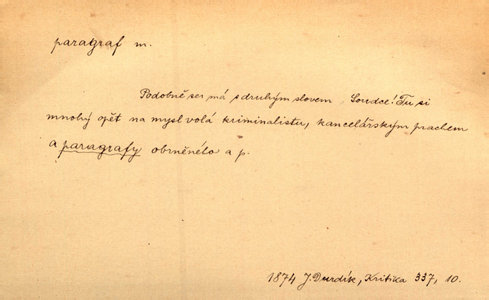 paragraf m.
Podobně se má s druhým slovem „Soudce! Tu si
mnohý opět na mysl volá kriminalistu, kancelářským prachem
a paragrafy obrněného a p.
1874 J. Durdík, Kritika 337, 10.